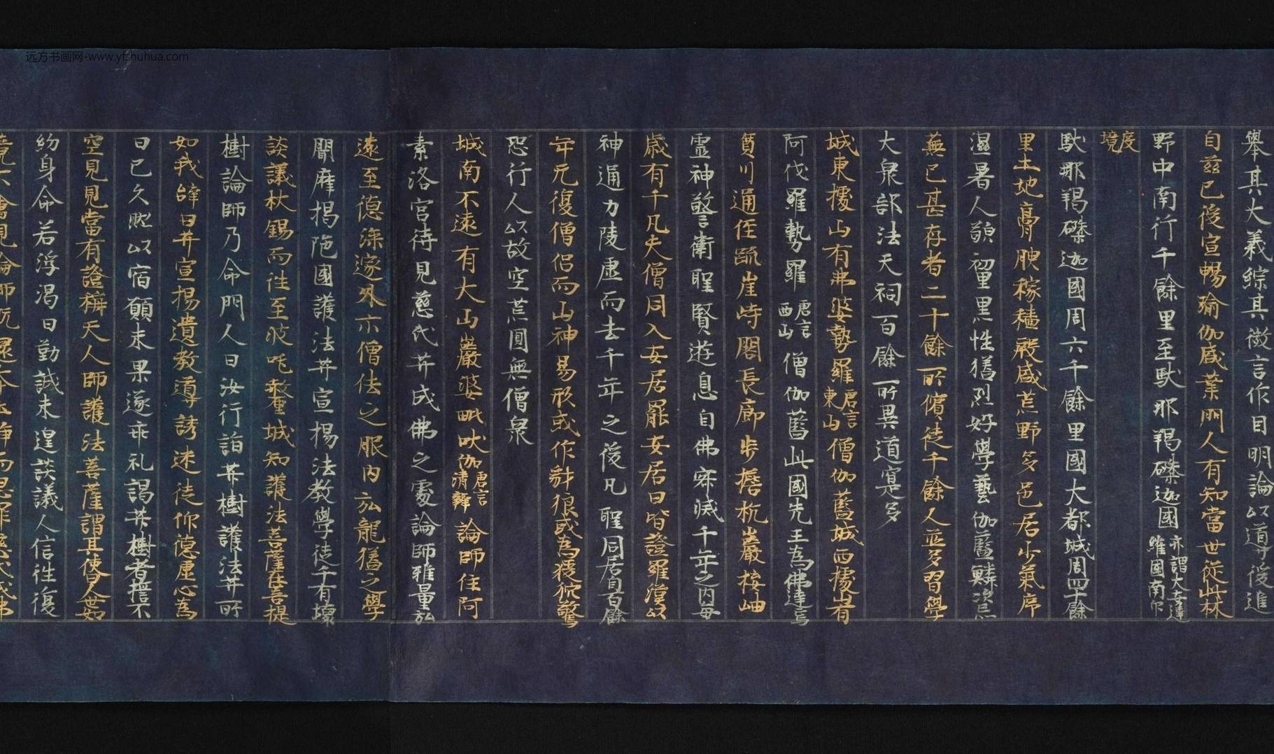 舉其大義綜其微言作因明論以導後進
自茲已後宣暢瑜伽咸業門人有知當世從此林
野中南行千餘里至馱那羯磔迦國亦謂大安達邏國南印
度境
馱那羯磔迦國周六千餘里國大都城周四十餘
里土地膏腴稼穡殷盛荒野多邑居少氣序
溫暑人貌釐黑性猛烈好學藝伽藍鱗次荒
蕪已甚存者二十餘所僧徒千餘人並多習學
大衆部法天祠百餘所異道寔多
城東據山有弗婆勢羅唐言東山僧伽藍城西據有
阿伐羅勢羅唐言西山僧伽藍此國先王為佛建焉
賁川通徑疏崖峙閣長廊步櫩枕巖椄岫
靈神警衛聖賢遊息自佛寂滅千年之內每
歲有千凡夫僧同入安居罷安居日皆證羅漢以
神通力陵虛而去千年之後凡聖同居自百餘
年无復僧侶而山神易形或作豺狼或為猨狖驚
恐行人以故空荒闃無僧衆
城南不遠有大山巖婆毗吠伽唐言清辯論師住阿
素洛宮待見慈氏菩成佛之處論師雅量弘
遠至德深邃外示僧佉之服內弘龍猛之學
聞摩揭陁國護法菩宣揚法教學徒千有壞
談議杖錫而往至波吒釐城知護法菩薩在菩提
樹論師乃命門人曰汝行詣菩樹護法菩所
如我辝曰菩宣揚遺教導誘迷徒仰德虛心為
日已久然以宿願未果遂乖礼謁菩樹者誓不
空見見當有證稱天人師護法菩薩謂其使人世如
紛身命若浮渴日勤誠未遑談議人信往復
竟不會見論師既還本土靜而思